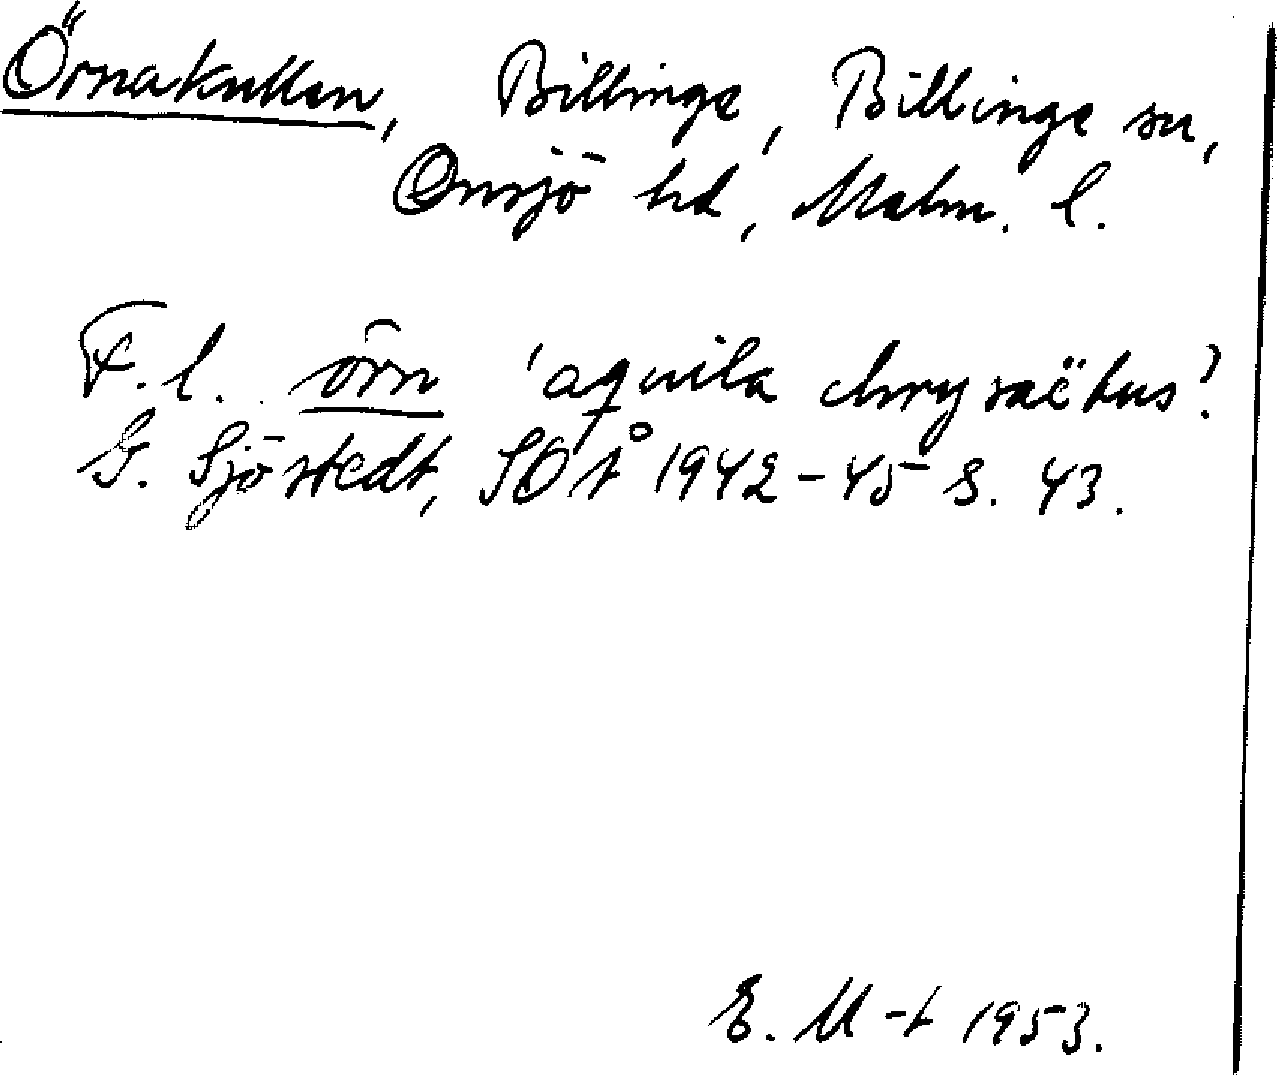 Örnakullen, Billinge, Billinge sn,
Onsjö hd, Malm. l.
F. l. örn 'aquila chrysaëtus'.
G. Sjöstedt, SOÅ 1942-45 s. 43.
E. M-t 1953.